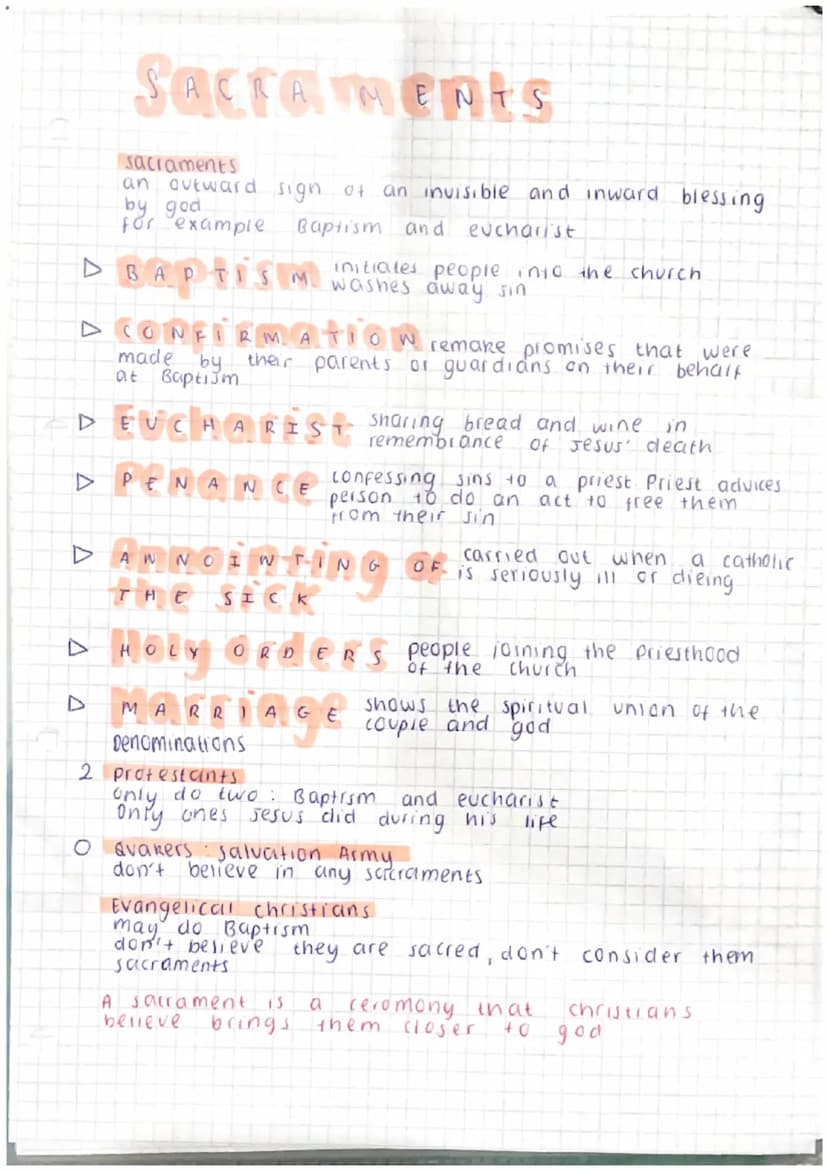 SACRAMENTS
sacraments
an outward sign of an invisible and inward blessing
by god
for example Baptism and eucharist
BAPTISM initiates people into the church
washes away sin
CONFIRMATION remake promises that were
made by their parents or guardians on their behalf
at Baptism
EUCHARIST sharing bread and wine in
remembrance of Jesus' death
PENANCE confessing sins to a priest Priest advices
person to do an act to free them
from their sin
ANNOINTING OF carried out when a catholic
is seriously ill or dieing
THE SICK
HOLY ORDERS people joining the priesthood
of the church
MARRIAGE shows the spiritual union of the
couple and god
Denominations
2 protestants
only do two : Baptism and eucharist
Only ones Jesus did during his life
0 Quakers : salvation Army
don't believe in any sacraments
Evangelical christians
may do Baptism
don't believe they are sacred, don't consider them
sacraments
A sacrament is a ceromony that christians
believe brings them closer to god